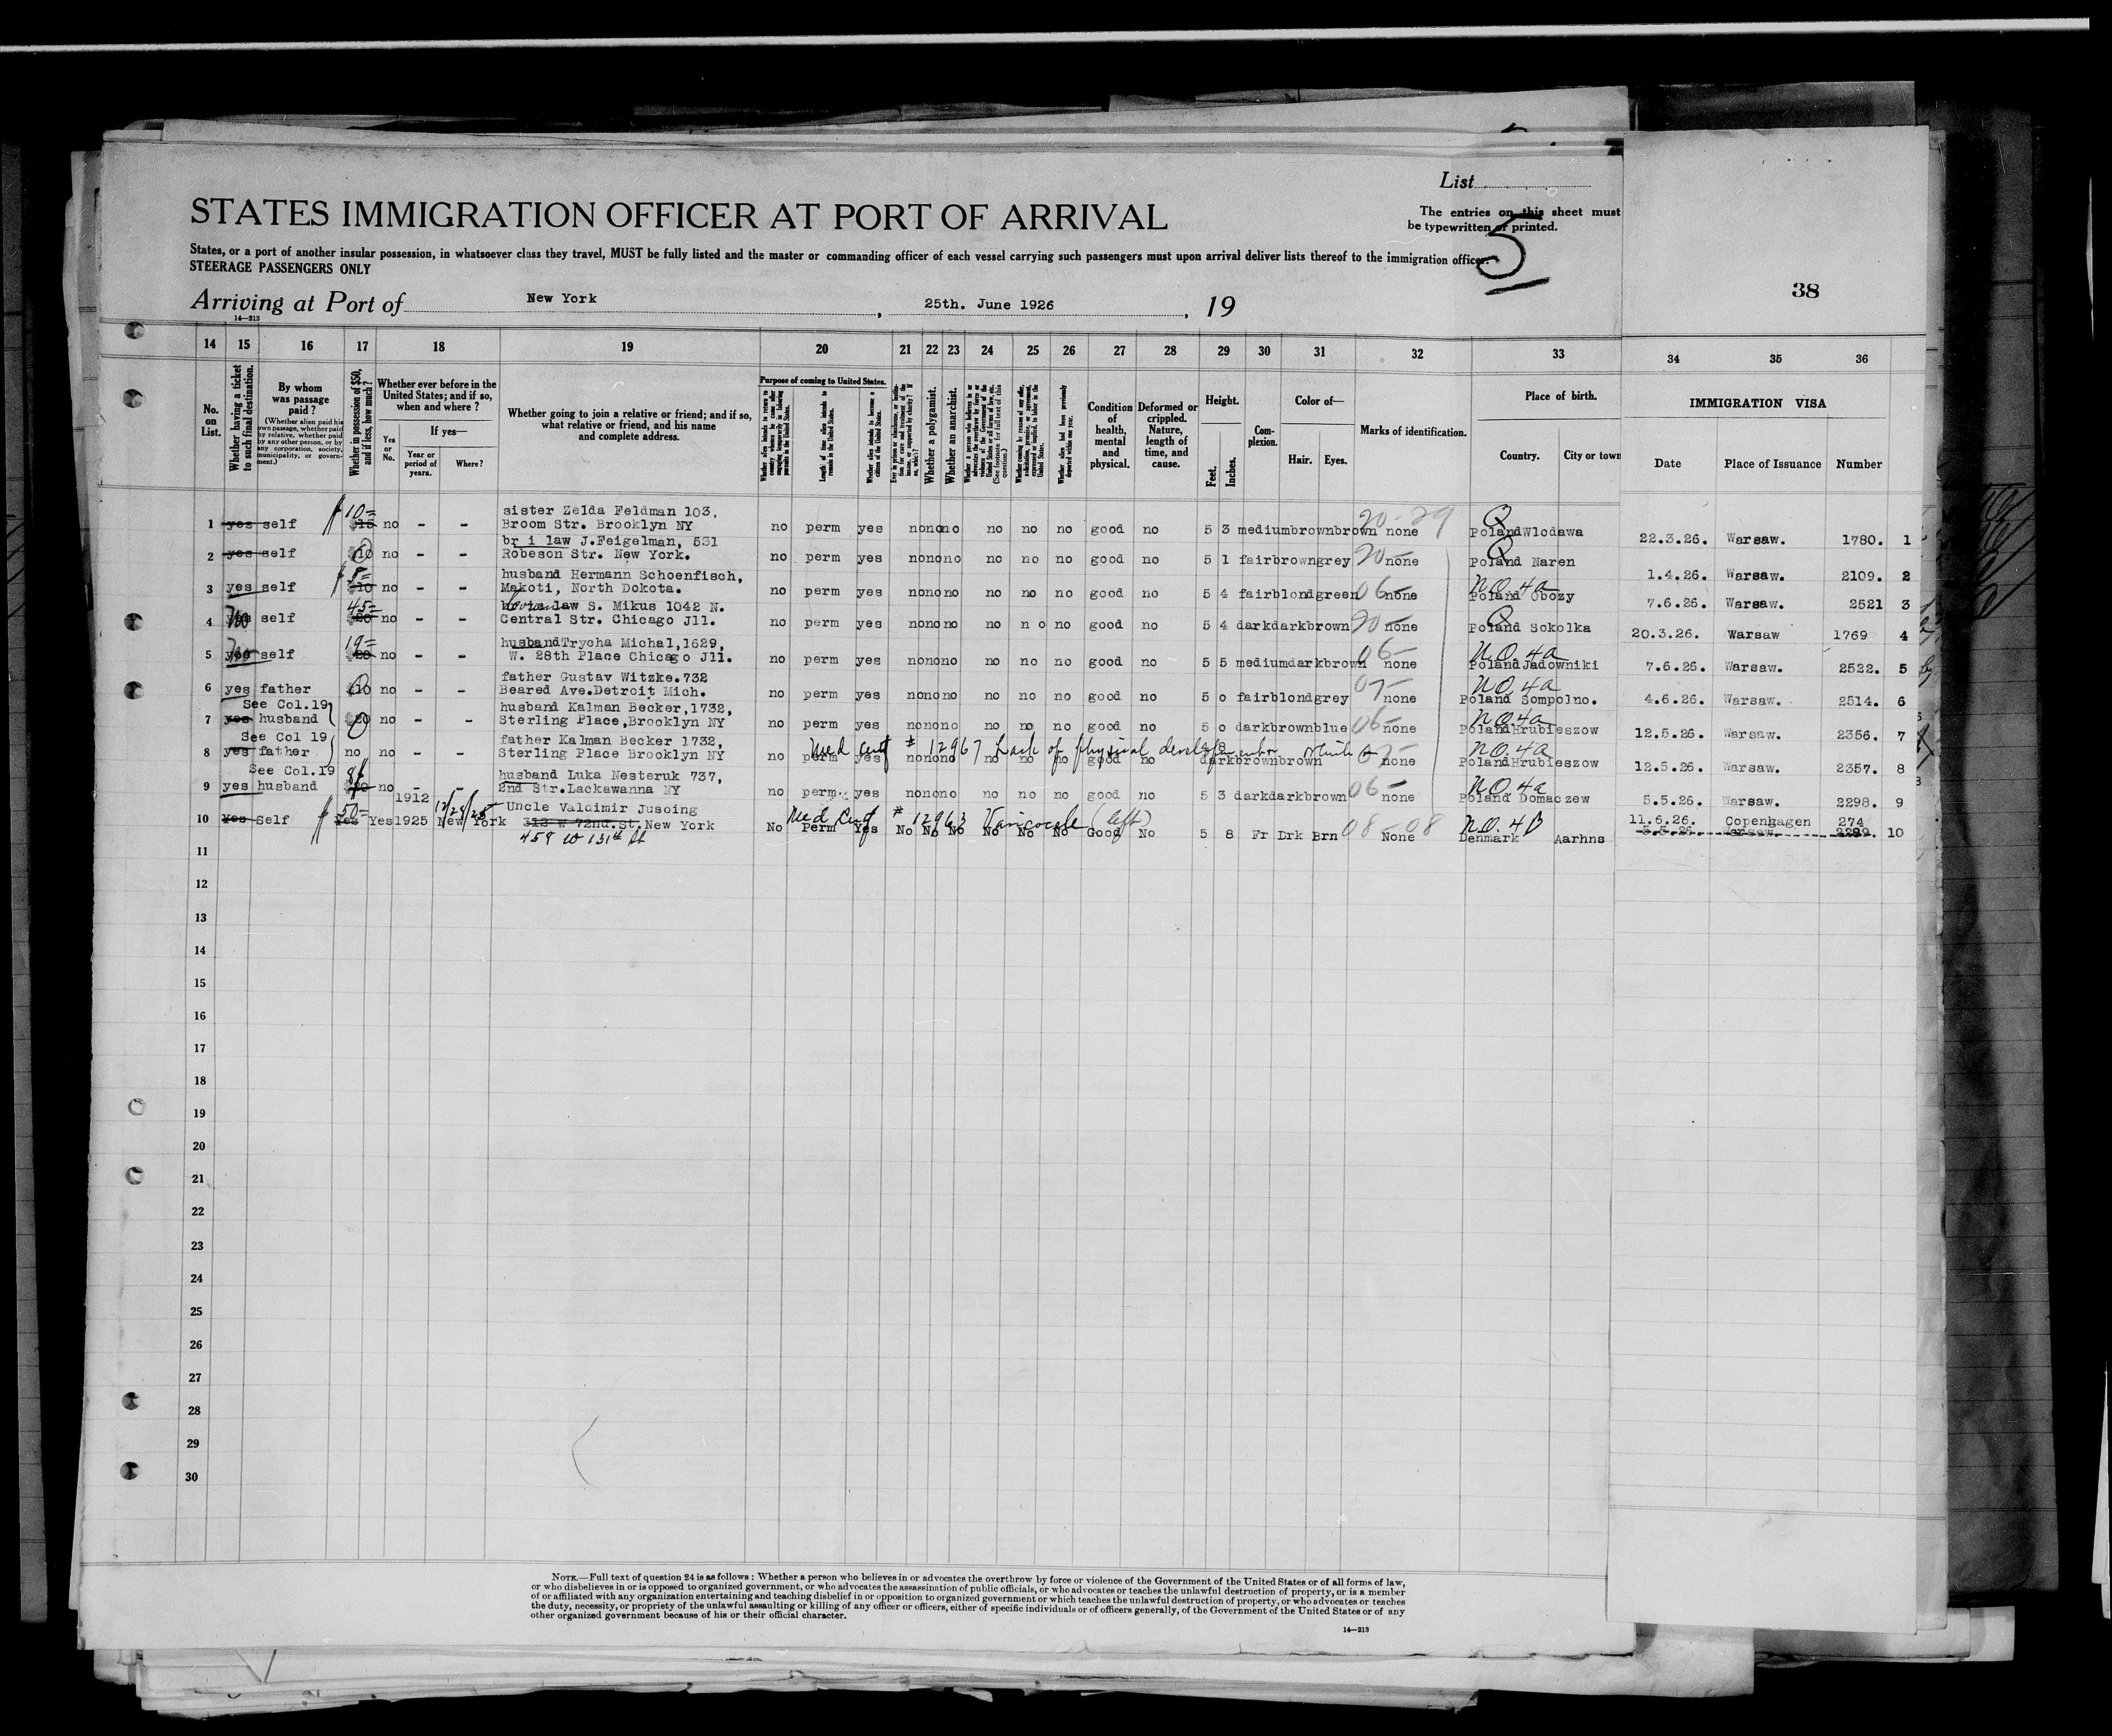 List
STATES IMMIGRATION OFFICER AT PORT OF ARRIVAL
The entries on this sheet must
be typewritten or printed.
5
States, or a port of another insular possession, in whatsoever class they travel, MUST be fully listed and the master or commanding officer of each vessel carrying such passengers must upon arrival deliver lists thereof to the immigration officer.
STEERAGE PASSENGERS ONLY
38
Arriving at Port of New York, 25th. June 1926, 19
14—213
14 15 16 17 18 19 20 21 22 23 24 25 26 27 28 29 30 31 32 33 34 35 36
No. on List.
Whether having a ticket to such final destination.
By whom was passage paid?
(Whether alien paid his own passage, whether paid by relative, whether paid by any other person, or by any corporation, society, municipality, or government.)
Whether in possession of $50, and if less, how much?
Whether ever before in the United States; and if so, when and where?
Yes or No.
If yes—
Year or period of years.
Where?
Whether going to join a relative or friend; and if so, what relative or friend, and his name and complete address.
Purpose of coming to United States.
Length of time alien intends to remain in the United States.
Whether alien intends to become a citizen of the United States.
Whether a polygamist.
Whether an anarchist.
Condition of health, mental and physical.
Deformed or crippled. Nature, length of time, and cause.
Height.
Feet.
Inches.
Complexion.
Color of—
Hair.
Eyes.
Marks of identification.
Place of birth.
Country.
City or town
IMMIGRATION VISA
Date
Place of Issuance
Number
sister Zelda Feldman 103,
1 yes self 10= $15 no - - Broom Str. Brooklyn NY no perm yes no no no no no no good no 5 3 medium brown brown none 20-29 Q Poland Wlodawa 22.3.26. Warsaw. 1780. 1
br i law J.Feigelman, 531
2 yes self $10 no - - Robeson Str. New York. no perm yes no no no no no no good no 5 1 fair brown grey 20- none Q Poland Naren 1.4.26. Warsaw. 2109. 2
husband Hermann Schoenfisch,
3 yes self $10 no - - Makoti, North Dokota. no perm yes no no no no no no good no 5 4 fair blond green 06- none N.O.4a Poland Obozy 7.6.26. Warsaw. 2521 3
law S. Mikus 1042 N.
4 yes No self 45= $20 no - - Central Str. Chicago Jll. no perm yes no no no no no no good no 5 4 dark dark brown 20- none Q Poland Sokolka 20.3.26. Warsaw 1769 4
husband Trycha Michal,1629,
5 yes No self $20 no - - W. 28th Place Chicago Jll. no perm yes no no no no no no good no 5 5 medium dark brown 06- none N.O.4a Poland Jadowniki 7.6.26. Warsaw. 2522. 5
father Gustav Witzke.732
6 yes father $10 no - - Beared Ave.Detroit Mich. no perm yes no no no no no no good no 5 0 fair blond grey 07- none N.O.4a Poland Sompolno. 4.6.26. Warsaw. 2514. 6
See Col.19 husband Kalman Becker,1732,
7 yes husband $20 0 no - - Sterling Place,Brooklyn NY no perm yes no no no no no no good no 5 0 dark brown blue 06- none N.O.4a Poland Hrubieszow 12.5.26. Warsaw. 2356. 7
See Col 19 father Kalman Becker 1732, Med Cert # 12967 Lack of physical development
8 yes father no no - - Sterling Place Brooklyn NY no perm yes no no no no no no good no 4 8 dark brown brown 07- none N.O.4a Poland Hrubieszow 12.5.26. Warsaw. 2357. 8
See Col.19 husband Luka Nesteruk 737,
9 yes husband no - - 2nd Str.Lackawanna NY no perm. yes no no no no no no good no 5 3 dark dark brown 06- none N.O.4a Poland Domaczew 5.5.26. Warsaw. 2298. 9
1912 12/25/25 Uncle Valdimir Jusoing Med Cert # 12963 Varicocele (left) 11.6.26. Copenhagen 274
10 Yes Self 50= Yes Yes 1925 New York 312 W 72nd.St.New York No Perm Yes No No No No No No Good No 5 8 Fr Drk Brn 08-08 None N.O.4D Denmark Aarhns 5.5.26. Warsaw. 2299. 10
459 W 131th St
11
12
13
14
15
16
17
18
19
20
21
22
23
24
25
26
27
28
29
30
NOTE.—Full text of question 24 is as follows: Whether a person who believes in or advocates the overthrow by force or violence of the Government of the United States or of all forms of law,
or who disbelieves in or is opposed to organized government, or who advocates the assassination of public officials, or who advocates or teaches the unlawful destruction of property, or is a member
of or affiliated with any organization entertaining and teaching disbelief in or opposition to organized government or which teaches the unlawful destruction of property, or who advocates or teaches
the duty, necessity, or propriety of the unlawful assaulting or killing of any officer or officers, either of specific individuals or of officers generally, of the Government of the United States or of any
other organized government because of his or their official character.
14—213